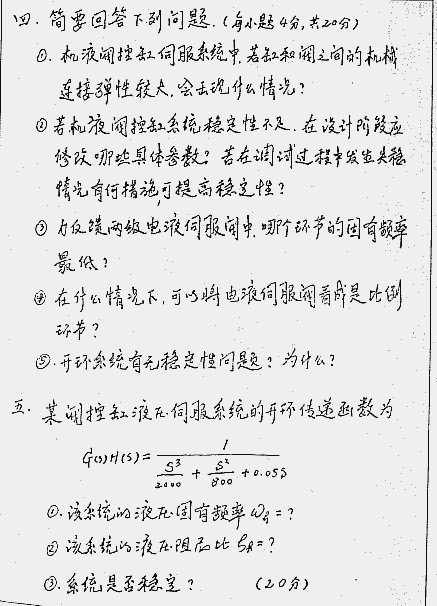 四. 简要回答下列问题. (每小题4分,共20分)
①. 机液阀控缸伺服系统中,若缸和阀之间的机械
连接弹性较大,会出现什么情况?
② 若机液阀控缸系统稳定性不足,在设计阶段应
修改哪些具体参数? 若在调试过程中发生失稳
情况有何措施可提高稳定性?
③ 力反馈两级电液伺服阀中,哪个环节的固有频率
最低?
④ 在什么情况下,可以将电液伺服阀看成是比例
环节?
⑤. 开环系统有无稳定性问题? 为什么?
五. 某阀控缸液压伺服系统的开环传递函数为
G(s)H(s)= 1 / (S³/2000 + S²/800 + 0.05S)
①. 该系统的液压固有频率 ωh=?
② 该系统的液压阻尼比 ζh=?
③. 系统是否稳定? (20分)